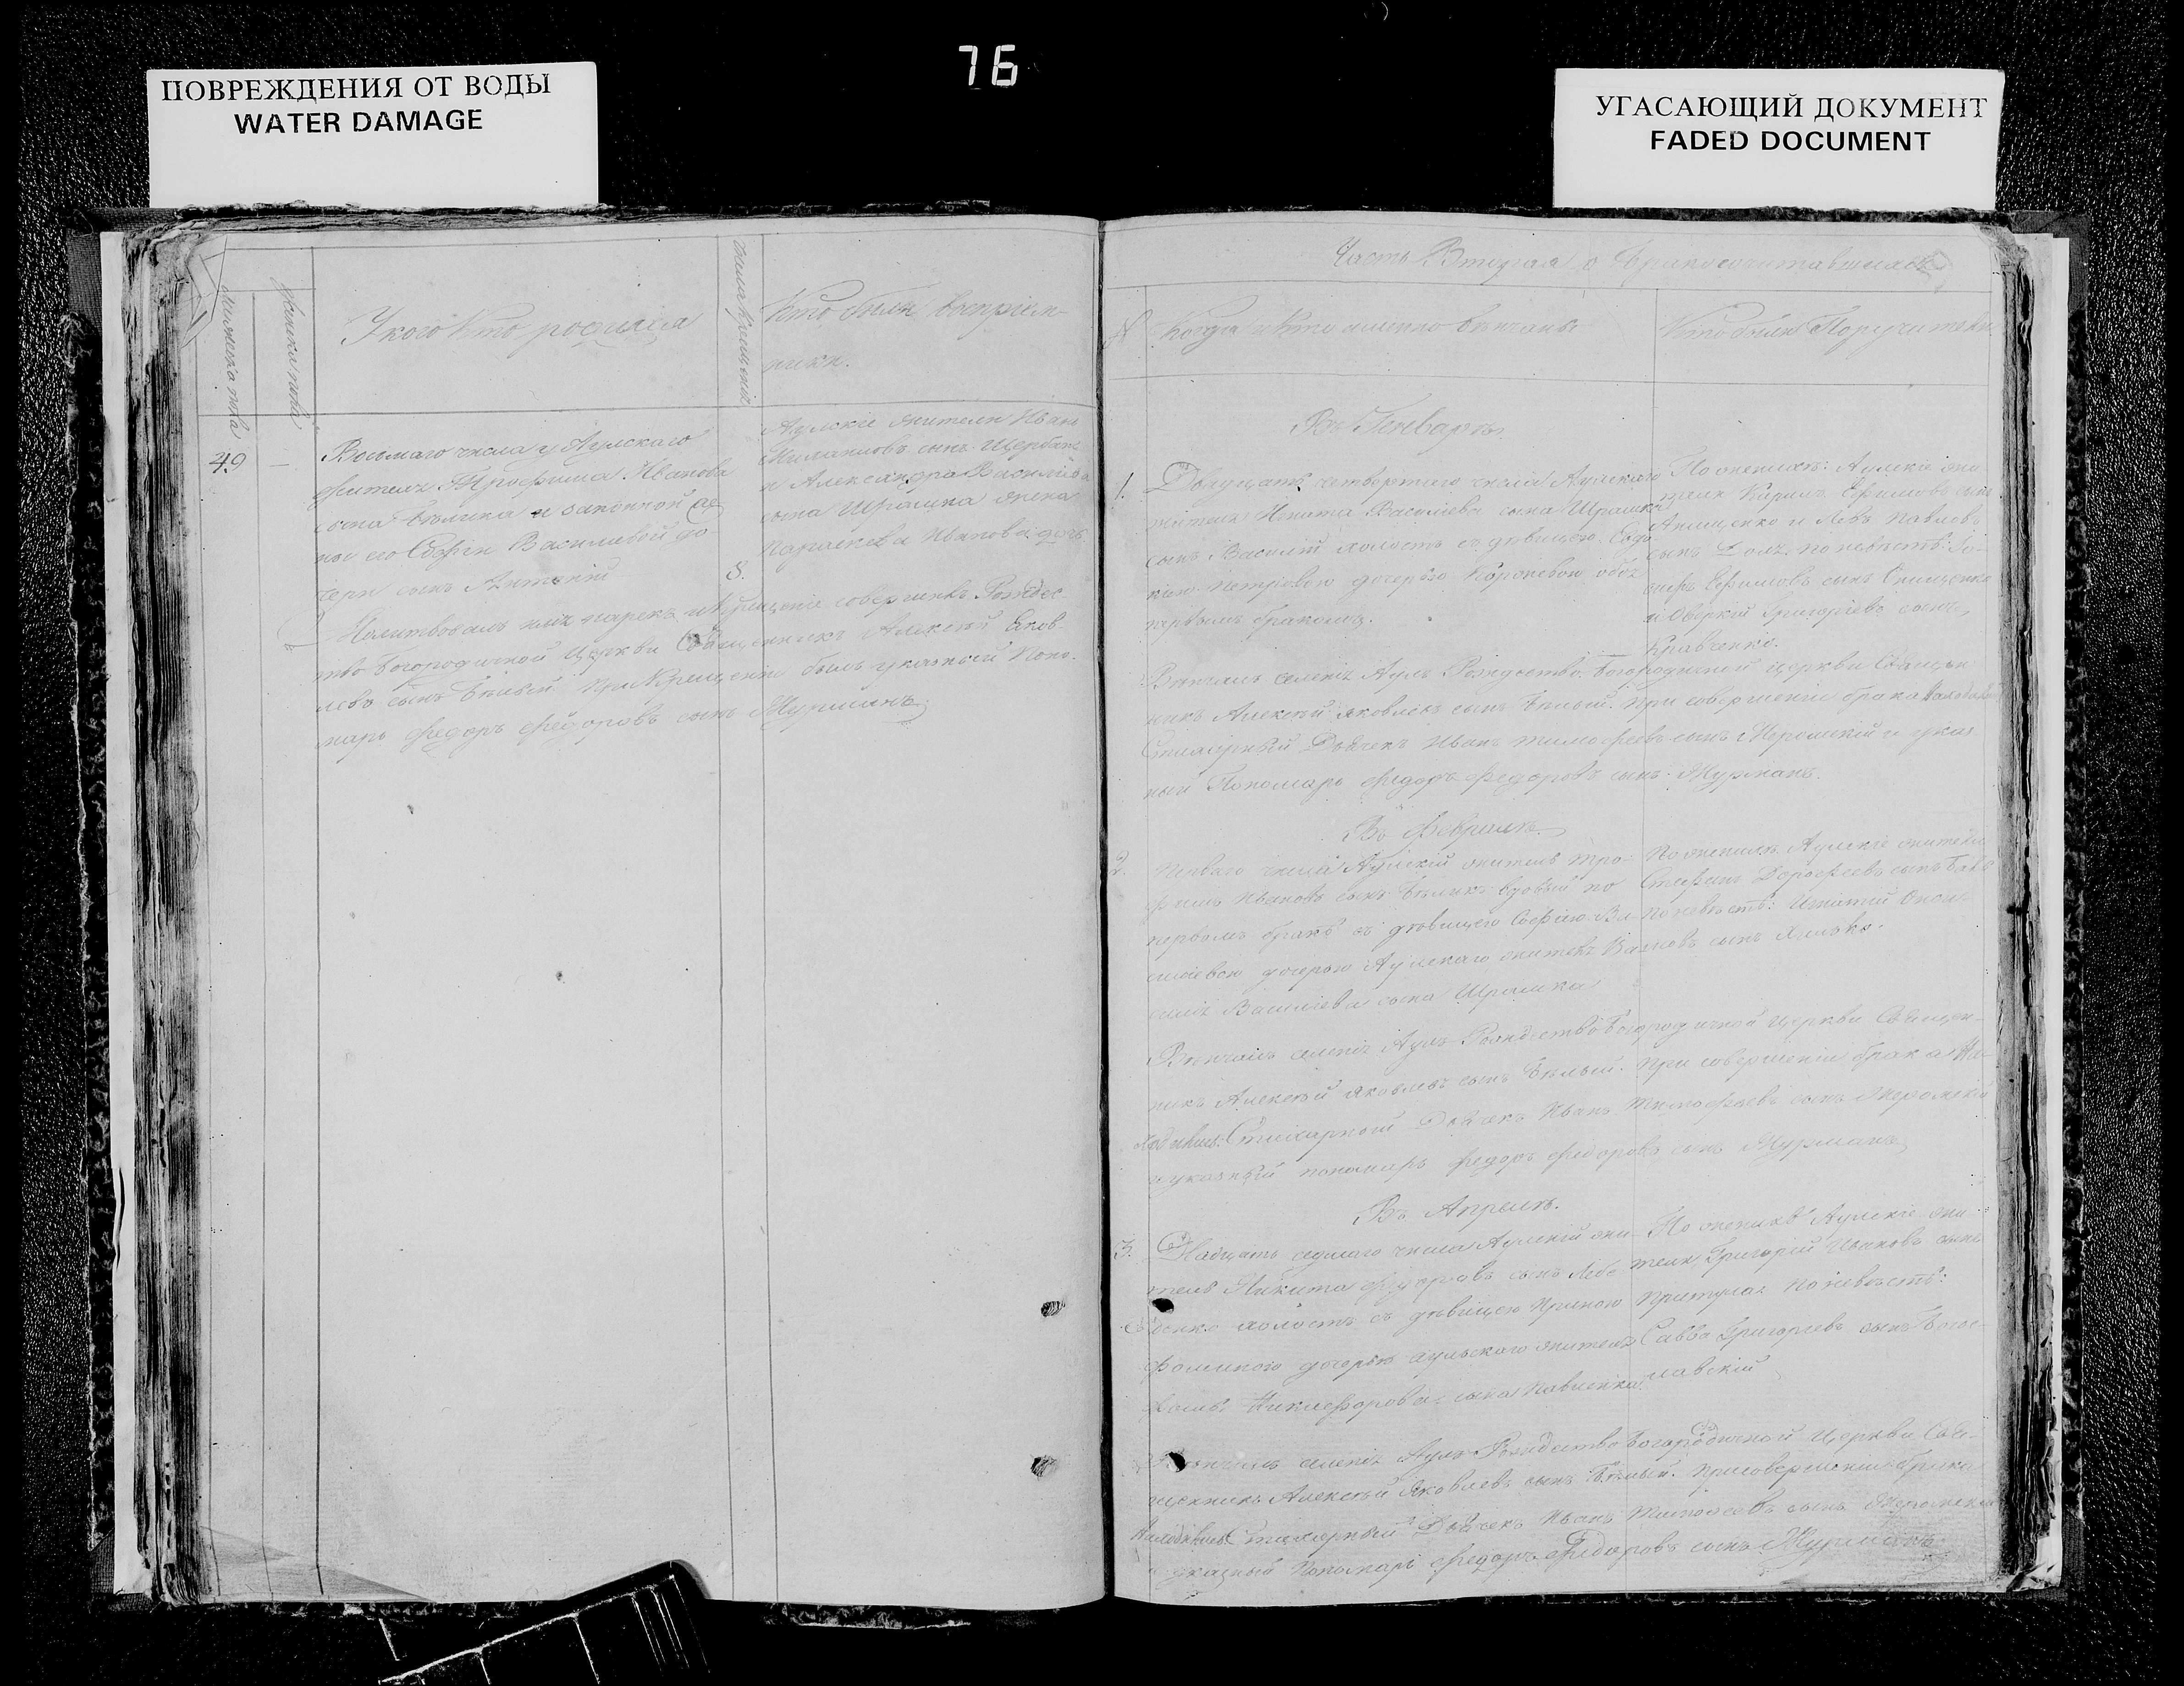 76
ПОВРЕЖДЕНИЯ ОТ ВОДЫ
WATER DAMAGE
УГАСАЮЩИЙ ДОКУМЕНТ
FADED DOCUMENT
мужеска пола
женска пола
У кого кто родился
числа крещения
Кто были воспріем-
ники.
49
Восьмаго числа у Аулскаго
жителя Трофима Иванова
сына Бѣлика и законной же
ны его Софіи Василиевой до
чери сынъ Антоній
8.
Аулскіе жители Иванъ
сынъ Щербакъ
и Александра Василиева
сына Шрамка жена
Параскева Иванова дочь
Молитвовалъ имя нарекъ и крещеніе совершилъ Рождес-
тво Богородичной Церкви Священникъ Алексѣй Яков-
левъ сынъ Бѣлый При крещеніи былъ указный Поно-
марь Федоръ Федоровъ сынъ Журманъ
Часть Вторая о бракосочитавшихся
№
Когда и Кто именно вѣнчаны
Кто были Поручители
Въ Генваръ
1.
Двадцать четвертаго числа Аулскаго
жителя Никита Василиева сына Шрамка
сынъ Василій холостъ съ дѣвицею Евдо-
кіею Петровою дочерью обоя
первымъ бракомъ.
По женихъ: Аулскіе жи
тели Кирилъ Ефимовъ сынъ
Анищенко и Левъ Павловъ
сынъ по невѣстѣ:
Ефимовъ сынъ
и Оверкій Григоріевъ сынъ
Кравченко.
Вѣнчалъ селенія Аулъ Рождество-Богородичной церкви Священ
никъ Алексѣй Яковлевъ сынъ Бѣлый. При совершеніи брака
Стихарный Дьячекъ Иванъ Тимофѣевъ сынъ Жеромскій и указ
ный Пономарь Федоръ Федоровъ сынъ Журманъ.
Въ Февралъ
2.
Перваго числа Аулскій житель Тро-
фимъ Ивановъ сынъ Бѣликъ вдовый по
первомъ бракѣ съ дѣвицею Софіею Ва-
силіевою дочерью Аулскаго жителя Ва
силія Василіева сына Шрамка
По женихъ Аулскіе жители
Стефанъ Дорофеевъ сынъ
по невѣстѣ: Игнатій
сынъ
Вѣнчалъ селенія Аулъ Рождество Богородичной Церкви Священ-
никъ Алексѣй Яковлевъ сынъ Бѣлый. При совершеніи брака На-
ходились: Стихарной Дьячекъ Иванъ Тимофѣевъ сынъ Жеромскій
и указный пономарь Федоръ Федоровъ сынъ Журманъ
Въ Апрелъ.
3.
седмаго числа Аулскій жи-
тель Никита Федоровъ сынъ Лебе
денко холостъ съ дѣвицею Ириною
Фоминою дочерью Аульского жителя
Фомы Никифорова сына Павленка
По женихъ Аулскіе жи
тели Григорій Ивановъ сынъ
Притула по невѣстѣ:
Савва Григоріевъ сынъ Богос-
лавскій
Вѣнчалъ селенія Аулъ Рождество Богородичной Церкви Свя-
щенникъ Алексѣй Яковлевъ сынъ Бѣлый. При совершеніи брака
Находились Стихарный Дьячекъ Иванъ Тимофеевъ сынъ Жеромскій
и указный Пономарь Федоръ Федоровъ сынъ Журманъ